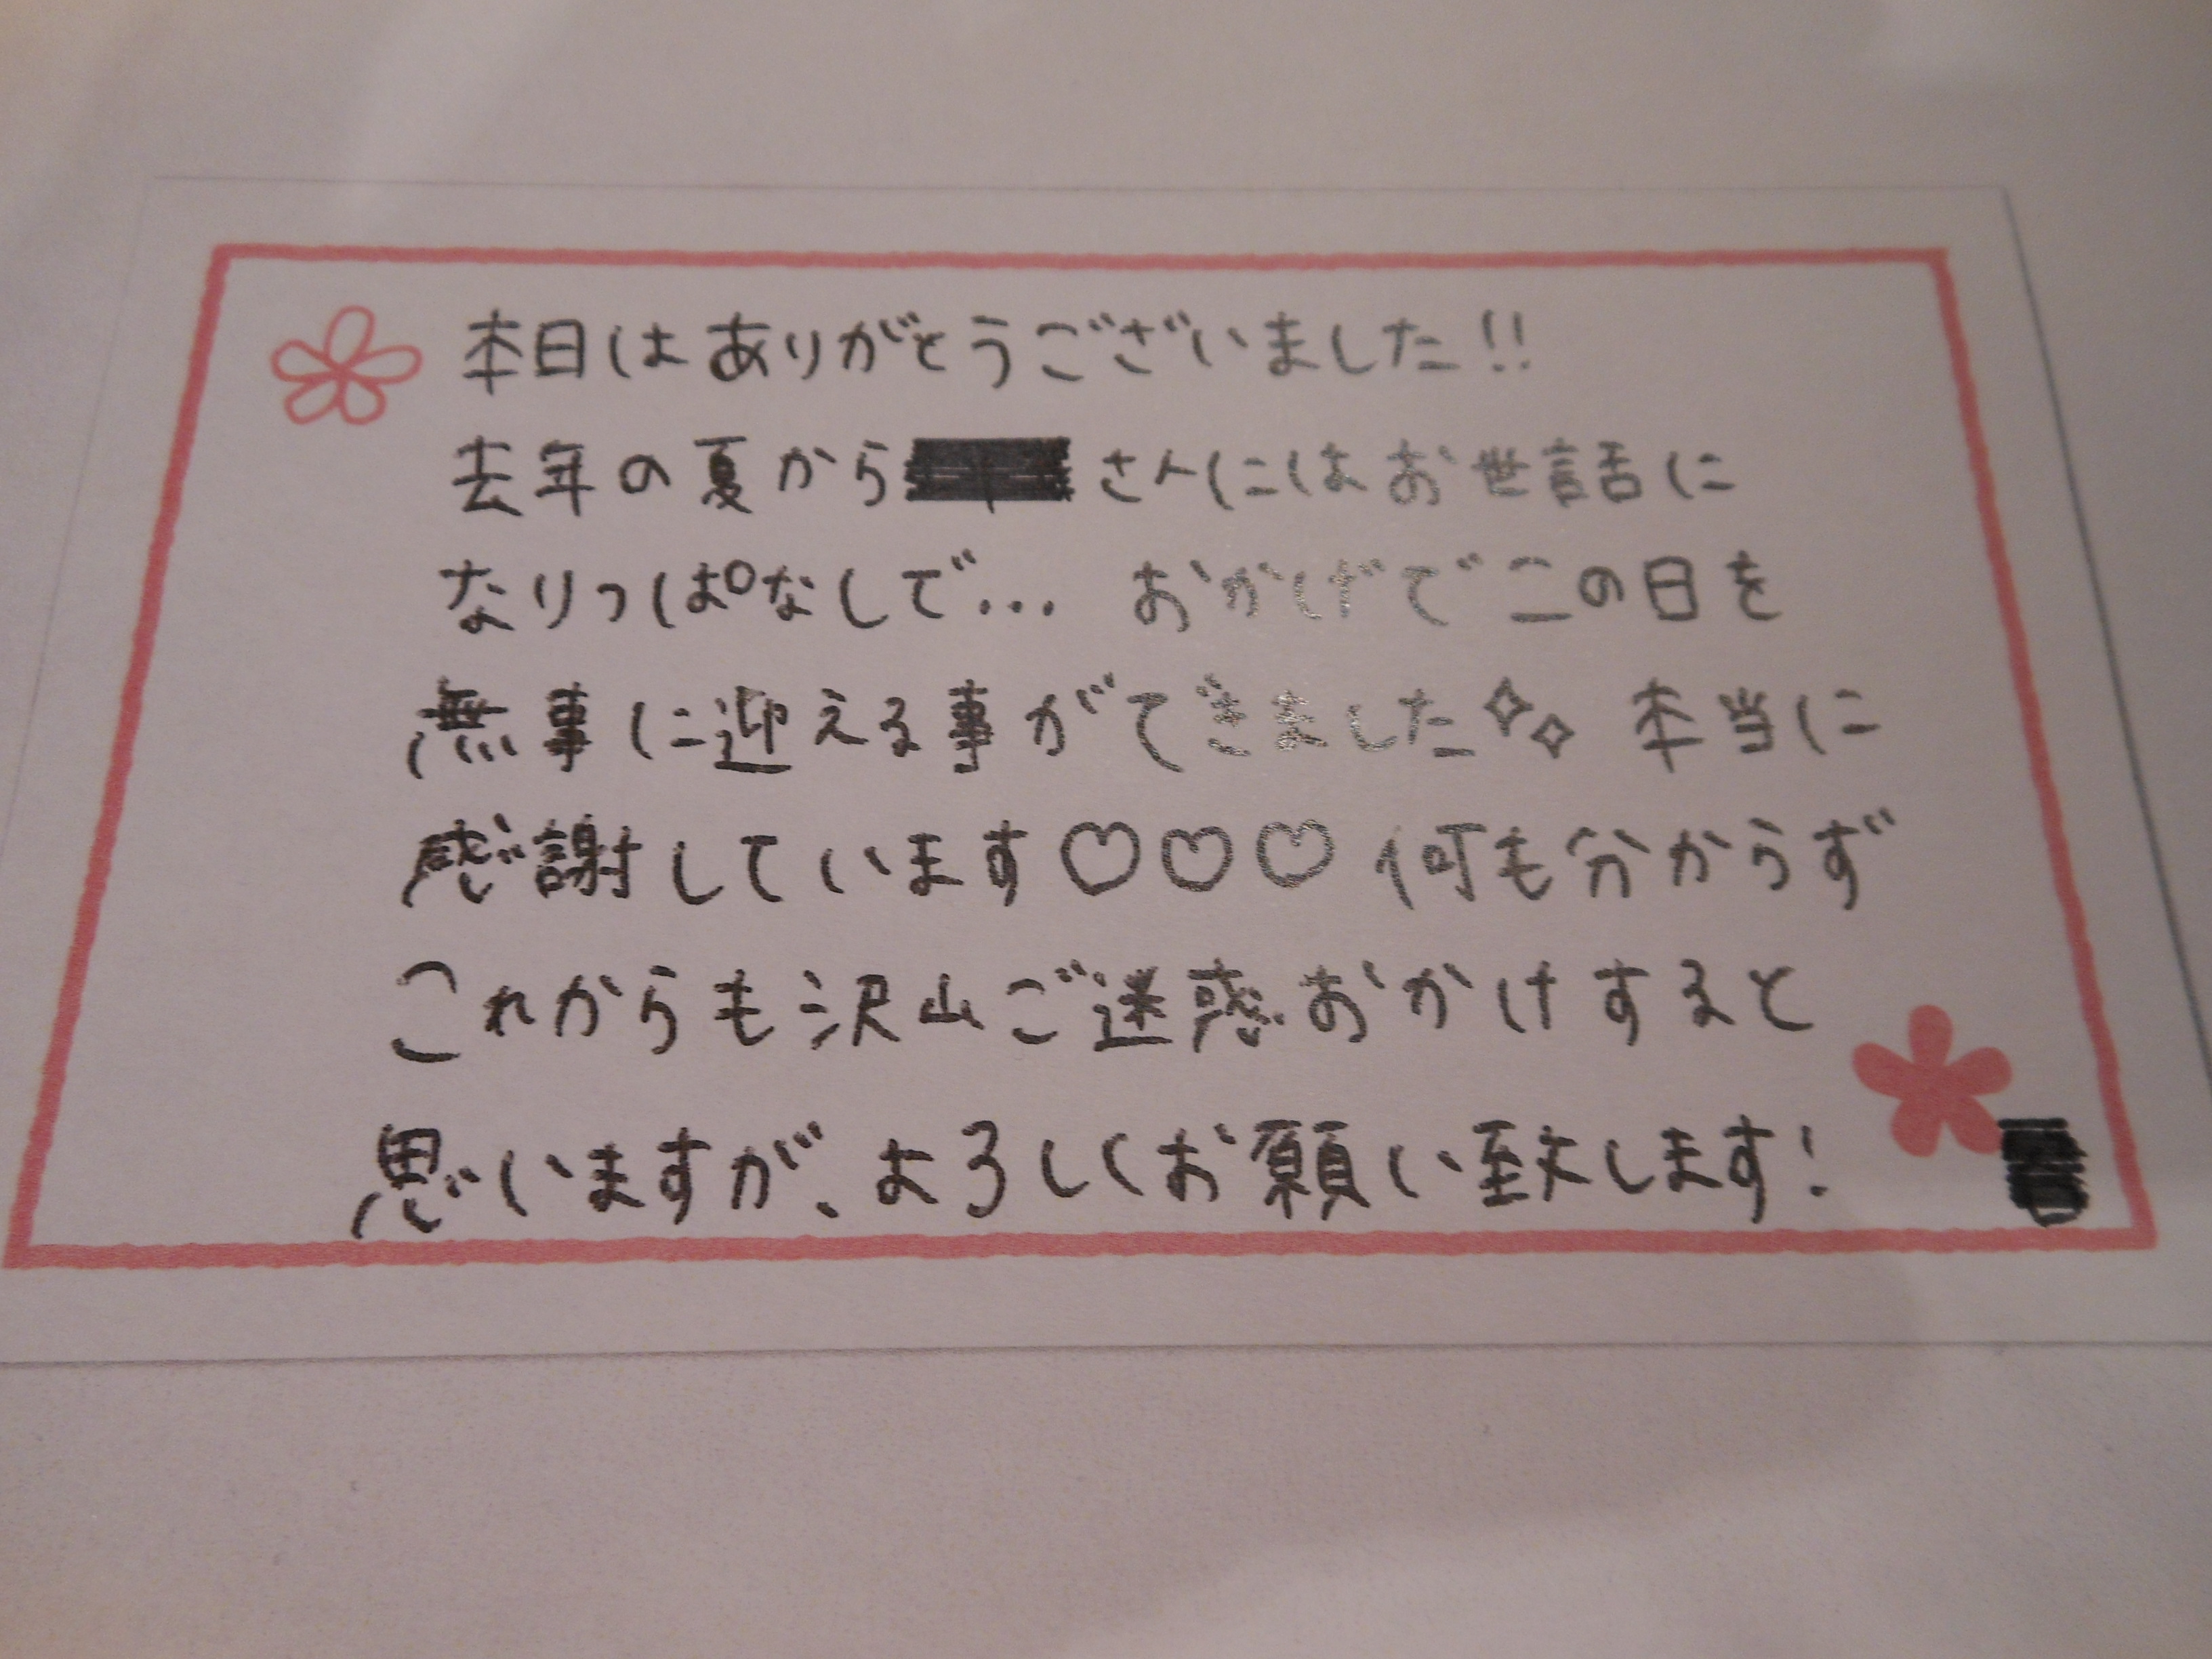 本日はありがとうございました!!
去年の夏から さんにはお世話に
なりっぱなしで… おかげでこの日を
無事に迎える事ができました 本当に
感謝しています♡♡♡ 何も分からず
これからも沢山ご迷惑おかけすると
思いますが、よろしくお願い致します!